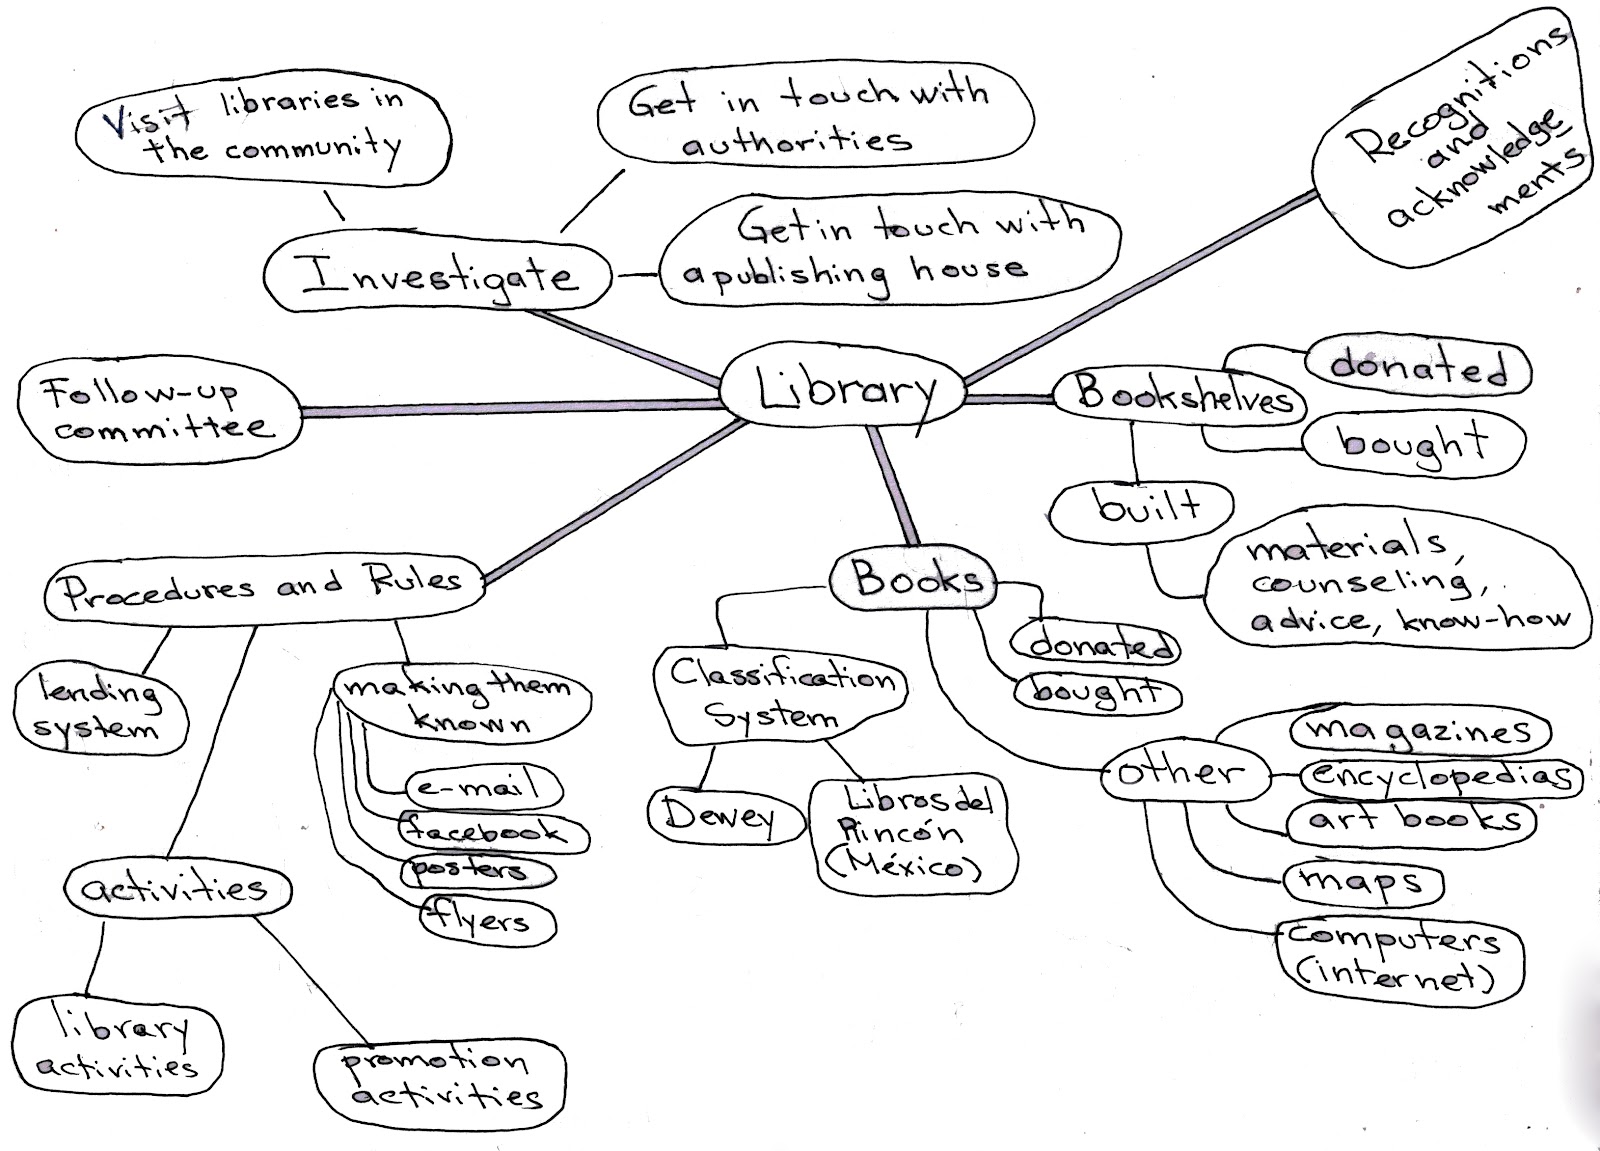 Visit libraries in
the community
Get in touch with
authorities
Recognitions
and
acknowledge
ments
Get in touch with
a publishing house
Investigate
Library
Follow-up
committee
Bookshelves
donated
bought
built
materials,
counseling,
advice, know-how
Procedures and Rules
lending
system
making them
known
e-mail
facebook
posters
flyers
activities
library
activities
promotion
activities
Books
donated
bought
Classification
System
Dewey
Libros del
Rincón
(México)
other
magazines
encyclopedias
art books
maps
computers
(internet)